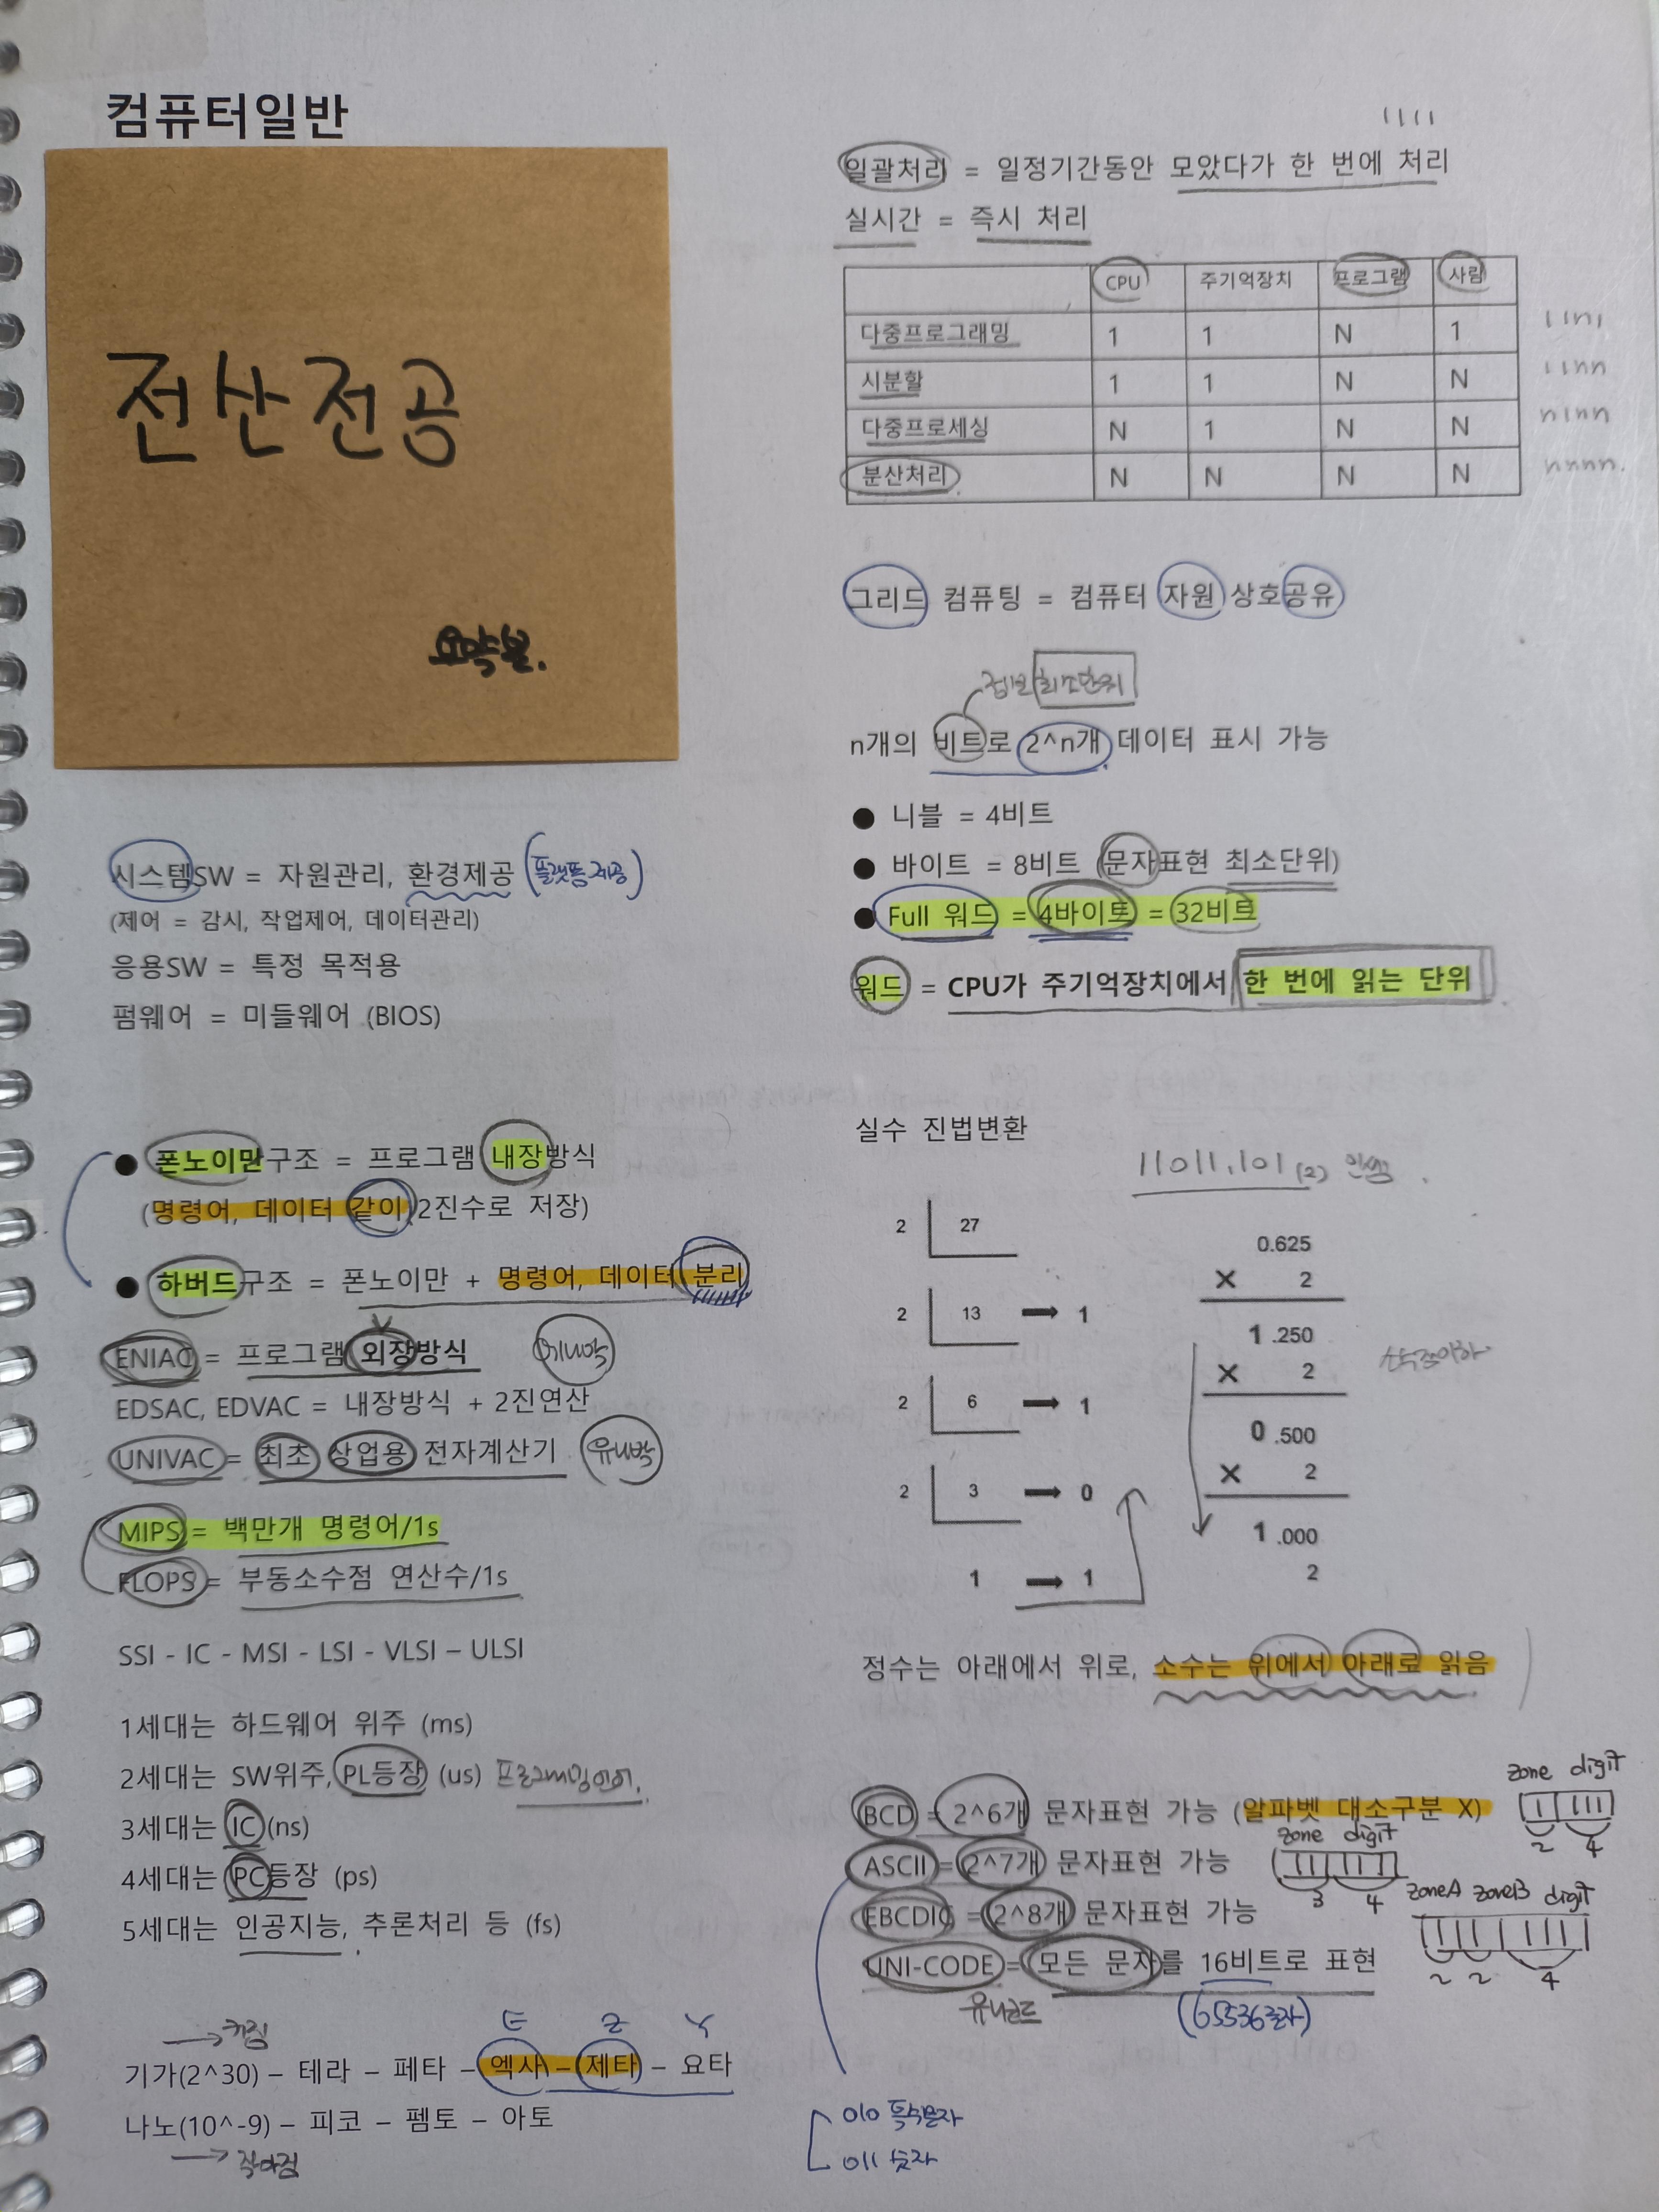 컴퓨터일반
전산전공
요약본.
시스템SW = 자원관리, 환경제공 (플랫폼 제공)
(제어 = 감시, 작업제어, 데이터관리)
응용SW = 특정 목적용
펌웨어 = 미들웨어 (BIOS)
● 폰노이만구조 = 프로그램 내장방식
(명령어, 데이터 같이 2진수로 저장)
● 하버드구조 = 폰노이만 + 명령어, 데이터 분리
ENIAC = 프로그램 외장방식 에니악
EDSAC, EDVAC = 내장방식 + 2진연산
UNIVAC = 최초 상업용 전자계산기 유니박
MIPS = 백만개 명령어/1s
FLOPS = 부동소수점 연산수/1s
SSI - IC - MSI - LSI - VLSI – ULSI
1세대는 하드웨어 위주 (ms)
2세대는 SW위주, PL등장 (us) 프로그래밍언어.
3세대는 IC (ns)
4세대는 PC등장 (ps)
5세대는 인공지능, 추론처리 등 (fs)
→ 커짐
E Z Y
기가(2^30) – 테라 – 페타 – 엑사 – 제타 – 요타
나노(10^-9) – 피코 – 펨토 – 아토
→ 작아짐
1111
일괄처리 = 일정기간동안 모았다가 한 번에 처리
실시간 = 즉시 처리
CPU 주기억장치 프로그램 사람
다중프로그래밍 1 1 N 1 11n1
시분할 1 1 N N 11nn
다중프로세싱 N 1 N N n1nn
분산처리 N N N N nnnn.
그리드 컴퓨팅 = 컴퓨터 자원 상호공유
정보 최소단위
n개의 비트로 2^n개 데이터 표시 가능
● 니블 = 4비트
● 바이트 = 8비트 (문자표현 최소단위)
● Full 워드 = 4바이트 = 32비트
워드 = CPU가 주기억장치에서 한 번에 읽는 단위
실수 진법변환
11011.101(2)
2 27
2 13 → 1
2 6 → 1
2 3 → 0
1 → 1
0.625
× 2
1 .250
× 2
0 .500
× 2
1 .000
2
소숫점이하
정수는 아래에서 위로, 소수는 위에서 아래로 읽음
zone digit
BCD = 2^6개 문자표현 가능 (알파벳 대소구분 X)
2 4
zone digit
ASCII = 2^7개 문자표현 가능
3 4
zoneA zoneB digit
EBCDIC = 2^8개 문자표현 가능
UNI-CODE = 모든 문자를 16비트로 표현
2 2 4
유니코드 (65536글자)
010 특수문자
011 숫자